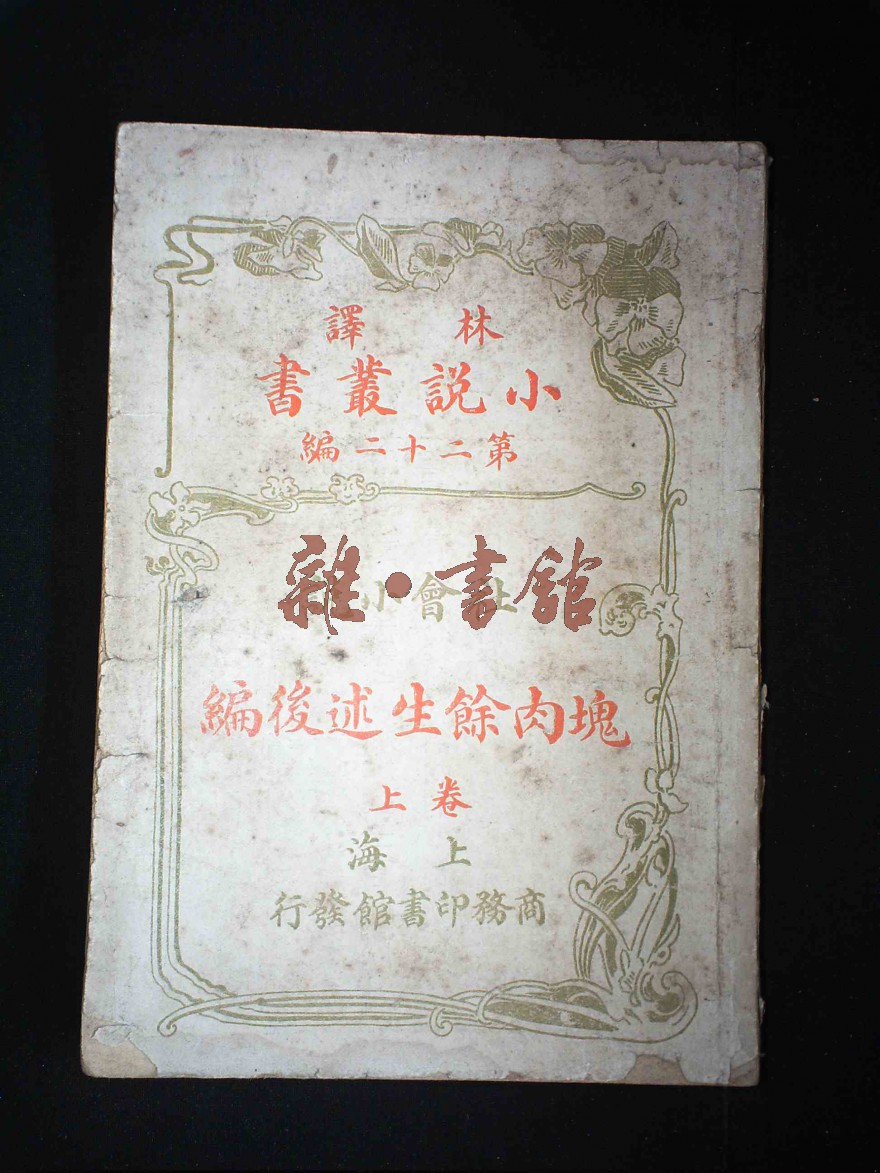 林譯
小說叢書
第二十二編
雜·書館
社會小
塊肉餘生述後編
卷上
上海
商務印書館發行